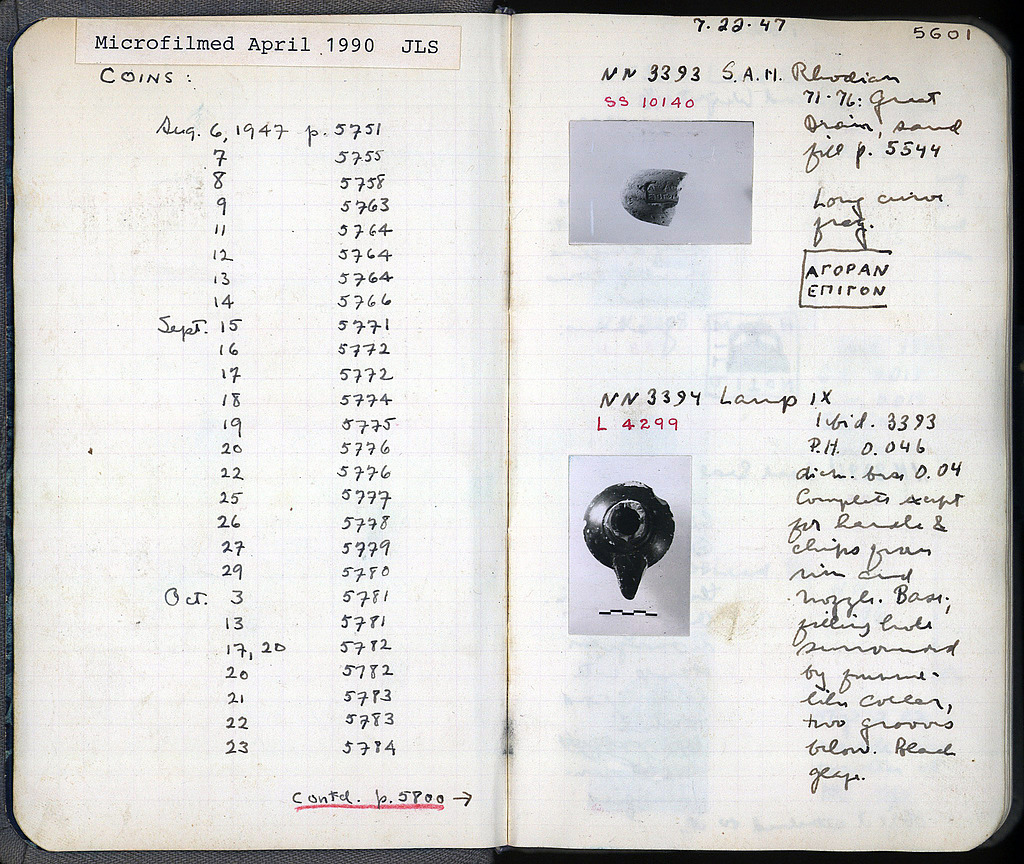 Microfilmed April 1990 JLS
COINS:
Aug. 6, 1947 p. 5751
7 5755
8 5758
9 5763
11 5764
12 5764
13 5764
14 5766
Sept. 15 5771
16 5772
17 5772
18 5774
19 5775
20 5776
22 5776
25 5777
26 5778
27 5779
29 5780
Oct. 3 5781
13 5781
17, 20 5782
20 5782
21 5783
22 5783
23 5784
Contd. p. 5800 →
7.22.47
5601
NN 3393 S.A.H. Rhodian
SS 10140
71-76: Great
Drain, sand
fill p. 5544
Long curve
frag.
ΑΓΟΡΑΝ
ΕΠΙΓΟΝ
NN 3394 Lamp IX
L 4299
Ibid. 3393
P.H. 0.046
diam. base 0.04
Complete except
for handle &
chips from
rim and
nozzle. Base,
filling hole
surrounded
by funnel-
like collar,
two grooves
below. Black
glaze.